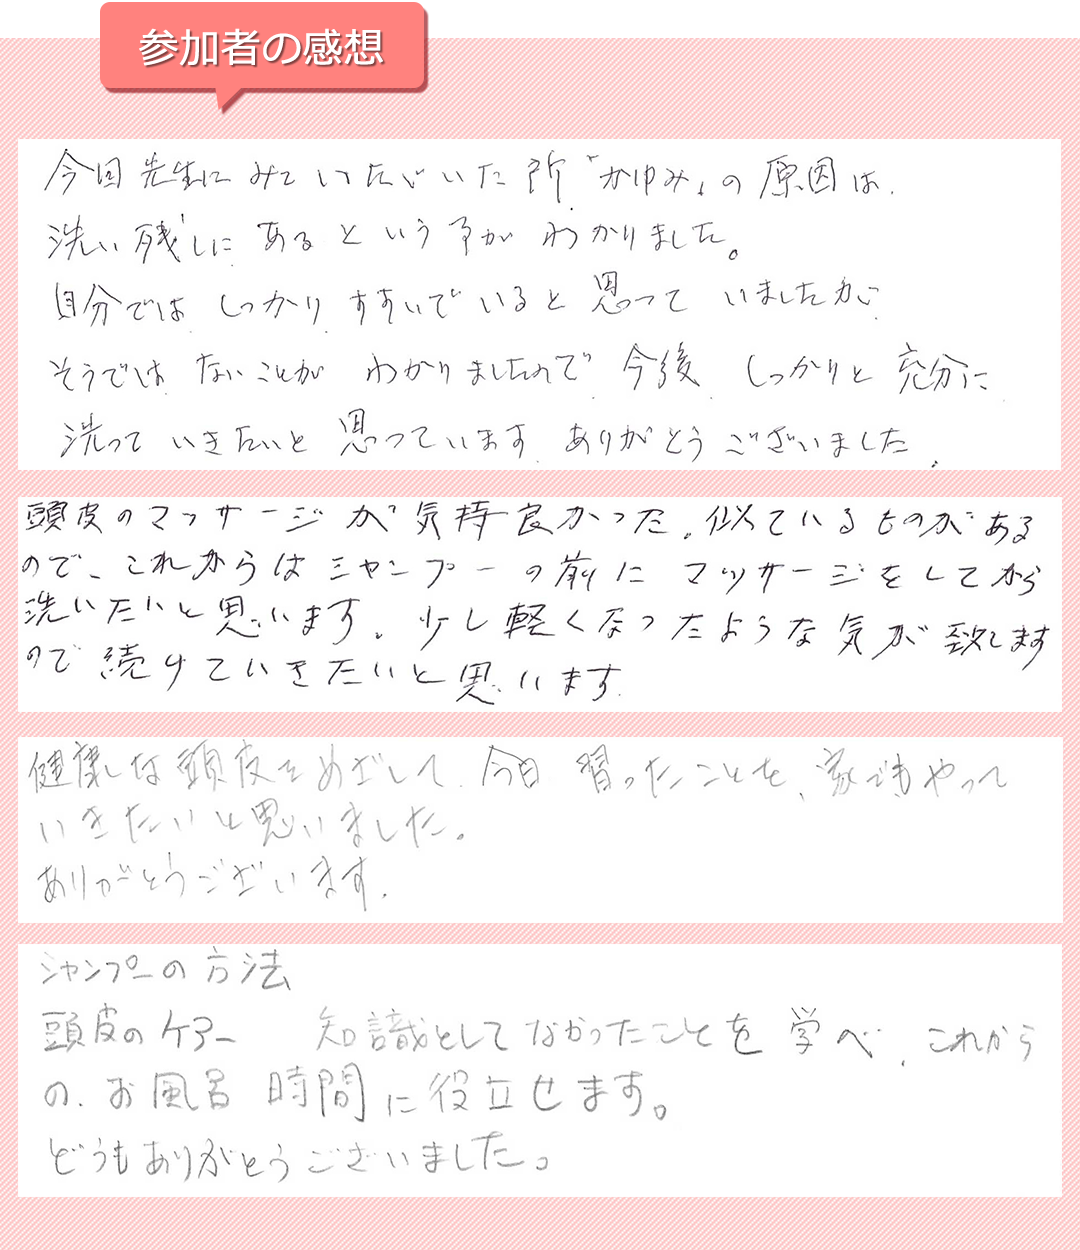 参加者の感想
今回先生にみていただいた所「かゆみ」の原因は、
洗い残しにあるという事がわかりました。
自分では しっかり すすいでいると思って いましたが
そうでは ないことが わかりましたので 今後 しっかりと 充分に
洗って いきたいと 思っています ありがとう ございました.
頭皮のマッサージが気持良かった。似ているものがある
ので、これからはシャンプーの前にマッサージをしてから
洗いたいと思います。少し軽くなったような気が致します
ので続けていきたいと思います.
健康な頭皮をめざして、今日 習ったことを、家でもやって
いきたいと思いました。
ありがとうございます.
シャンプーの方法
頭皮のケアー 知識としてなかったことを学べ、これから
の、お風呂 時間に役立せます。
どうもありがとうございました。